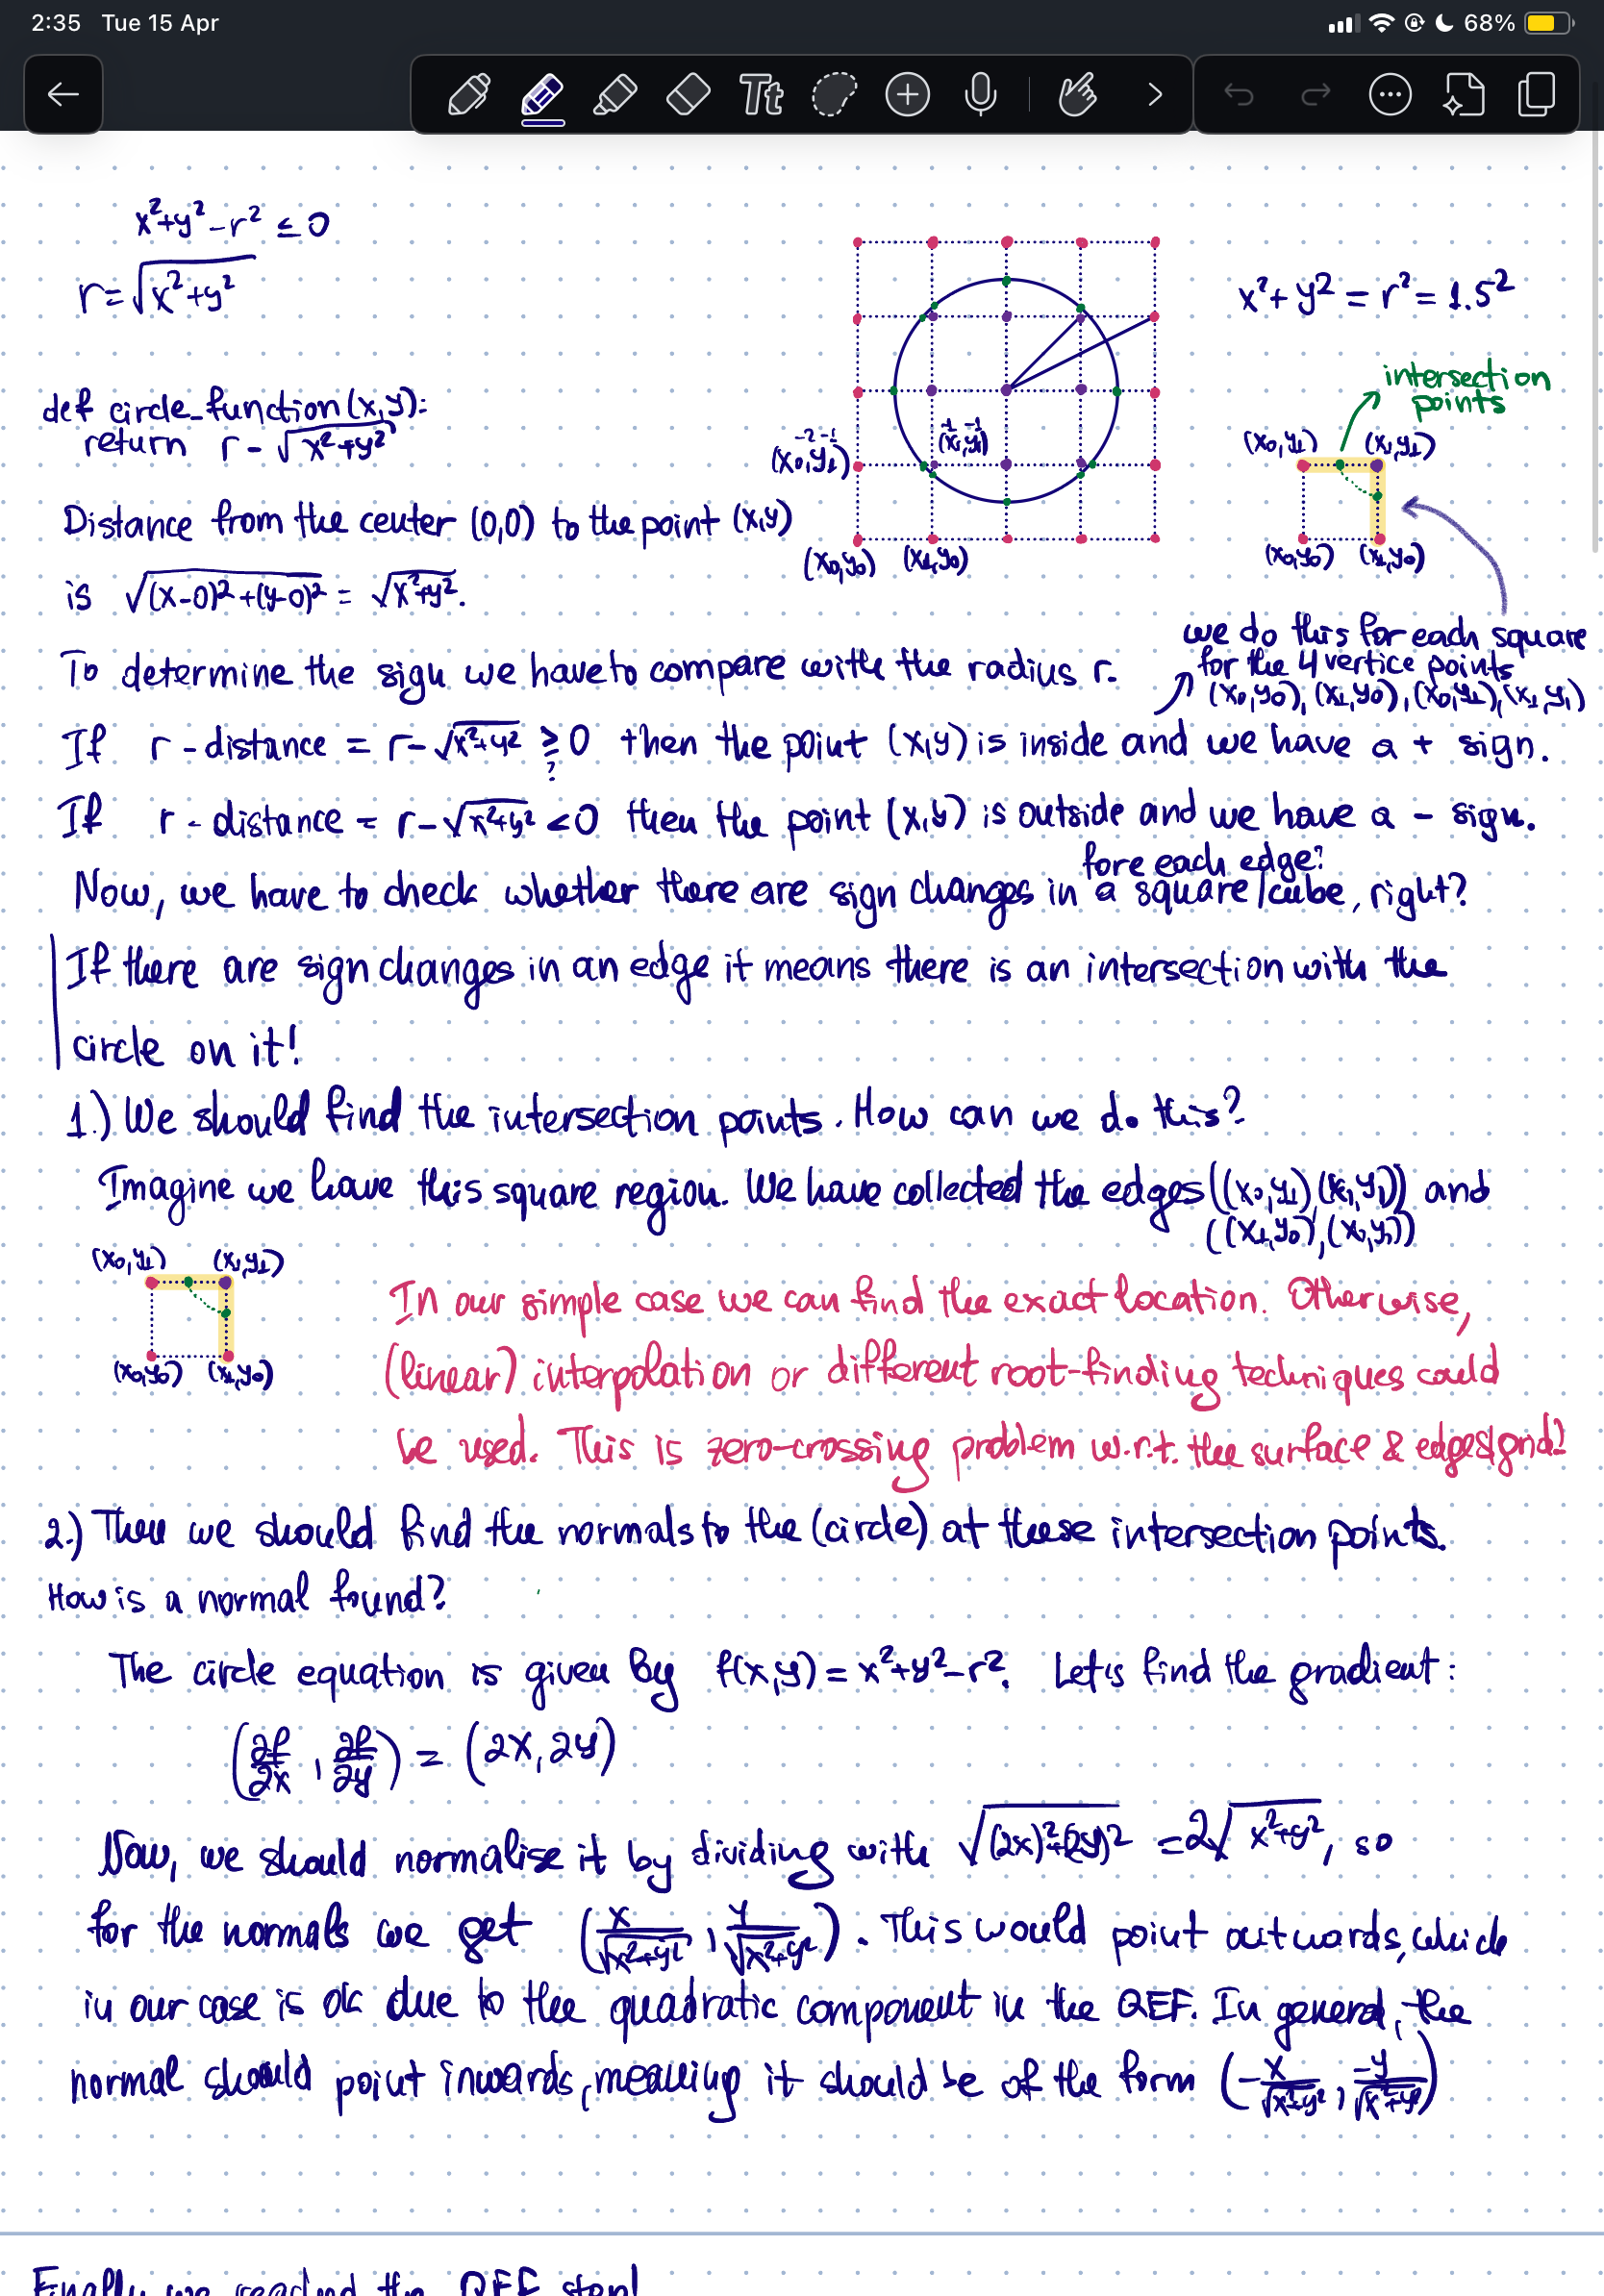 2:35 Tue 15 Apr
68%
Tt
x²+y²-r² ≤ 0
r=√x²+y²
x²+y2 = r²= 1.5²
def circle_function(x,y):
return r-√x²+y²
intersection
points
-2 -1
(x0,y1)
-1 -1
(x1,y1)
(x0,y1) (x1,y1)
Distance from the center (0,0) to the point (x,y)
(x0,y0) (x1,y0)
(x0,y0) (x1,y0)
is √(x-0)²+(y-0)² = √x²+y².
we do this for each square
for the 4 vertice points
(x0,y0), (x1,y0), (x0,y1), (x1,y1)
To determine the sign we have to compare with the radius r.
If r - distance = r-√x²+y² ≥ 0 then the point (x,y) is inside and we have a + sign.
?
If r - distance = r-√x²+y² < 0 then the point (x,y) is outside and we have a - sign.
fore each edge?
Now, we have to check whether there are sign changes in a square/cube, right?
If there are sign changes in an edge it means there is an intersection with the
circle on it!
1.) We should find the intersection points. How can we do this?
Imagine we have this square region. We have collected the edges ((x0,y1),(x1,y1)) and
((x1,y0),(x1,y1))
(x0,y1) (x1,y1)
(x0,y0) (x1,y0)
In our simple case we can find the exact location. Otherwise,
(linear) interpolation or different root-finding techniques could
be used. This is zero-crossing problem w.r.t. the surface & edges/grid!
2.) Then we should find the normals to the (circle) at these intersection points.
How is a normal found?
The circle equation is given by f(x,y) = x²+y²-r². Let's find the gradient:
(∂f/∂x , ∂f/∂y) = (2x, 2y)
Now, we should normalise it by dividing with √(2x)²+(2y)² =2√x²+y², so
for the normals we get (x/√x²+y² , y/√x²+y²). This would point outwards, which
in our case is ok due to the quadratic component in the QEF. In general, the
normal should point inwards, meaning it should be of the form (-x/√x²+y² , -y/√x²+y²)
Finally we reached the QEF step!